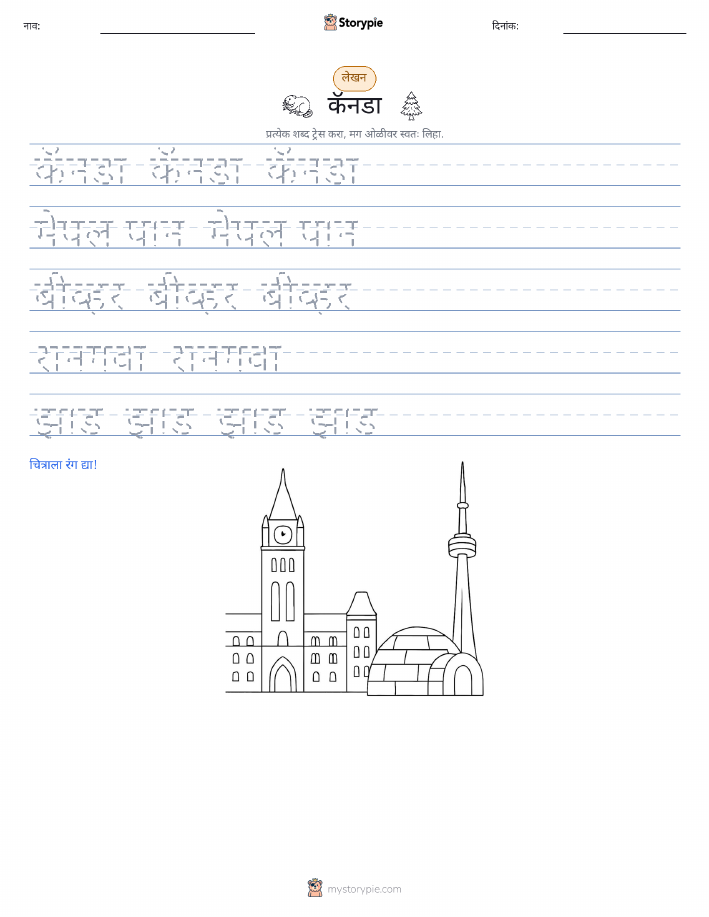 नाव:
Storypie
दिनांक:
लेखन
कॅनडा
प्रत्येक शब्द ट्रेस करा, मग ओळीवर स्वतः लिहा.
कॅनडा कॅनडा कॅनडा
मेपल पान मेपल पान
बीव्हर बीव्हर बीव्हर
रानगवा रानगवा
झाड झाड झाड झाड
चित्राला रंग द्या!
mystorypie.com